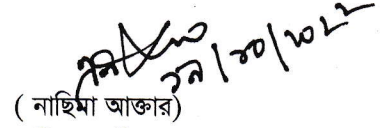 ২৯/১০/২০২২
( নাছিমা আক্তার)